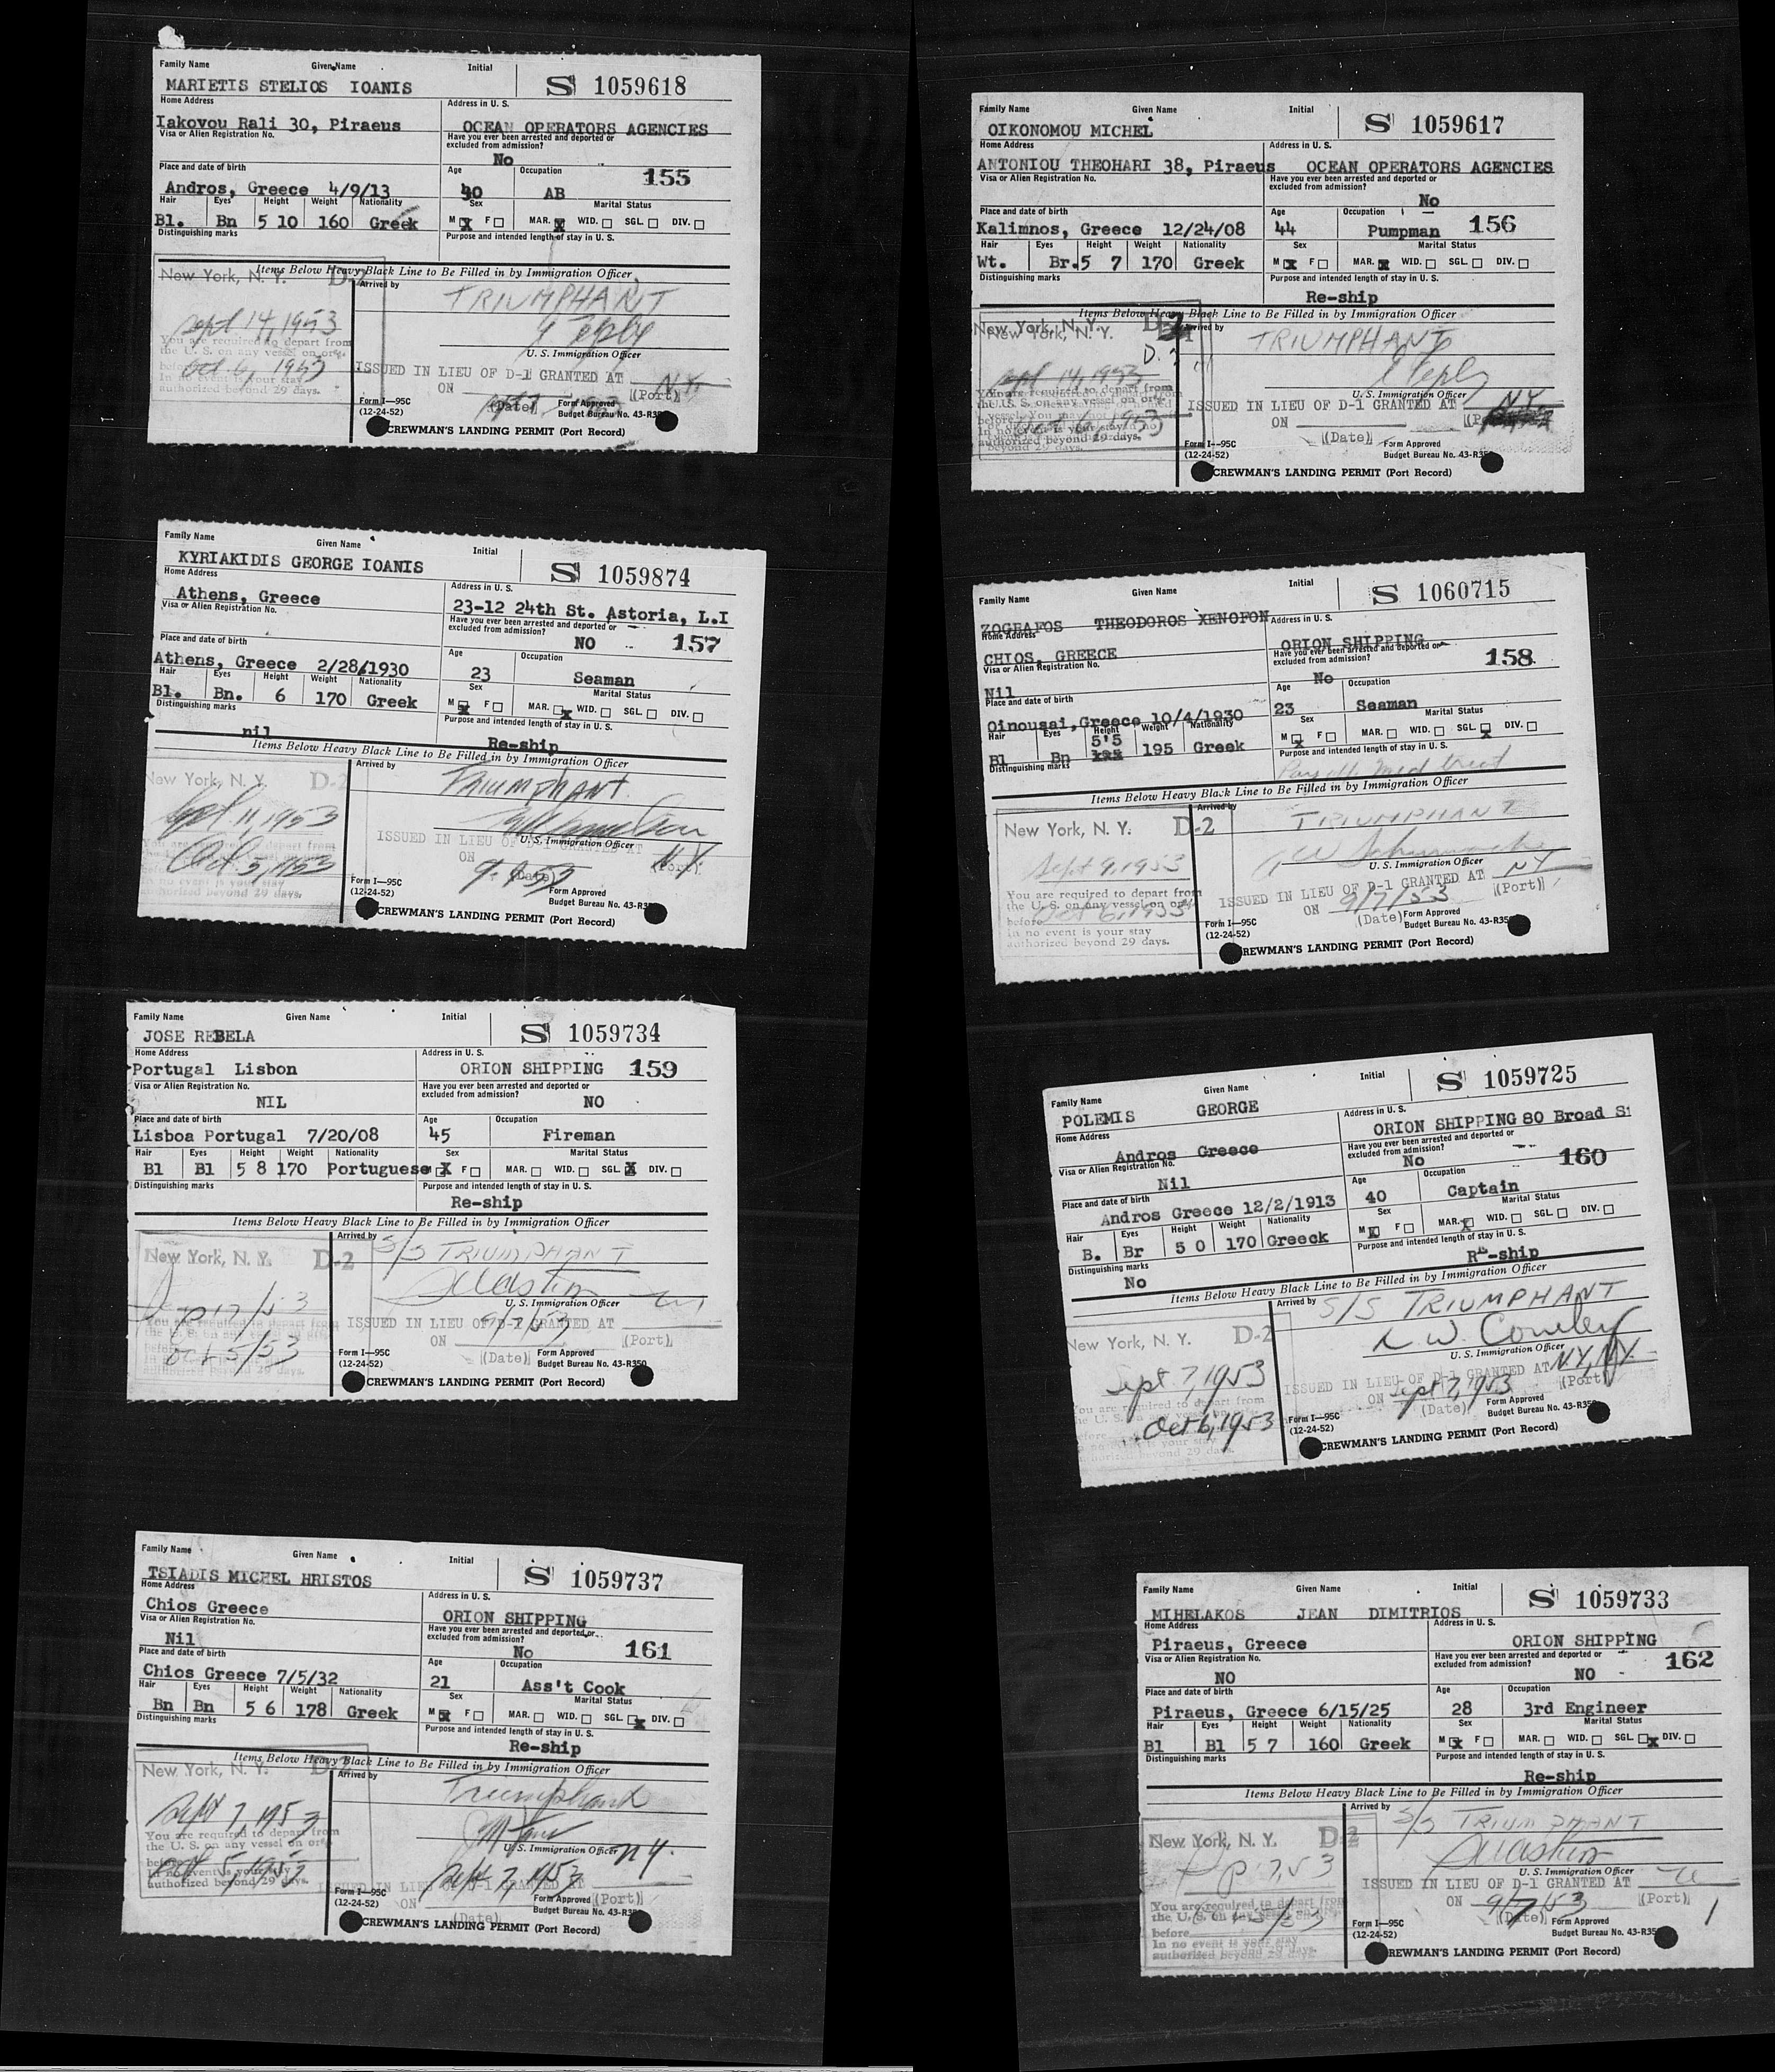 Family Name Given Name Initial
MARIETIS STELIOS IOANIS S 1059618
Home Address Address in U. S.
Iakovou Rali 30, Piraeus OCEAN OPERATORS AGENCIES
Visa or Alien Registration No. Have you ever been arrested and deported or excluded from admission?
No
Place and date of birth Age Occupation 155
Andros, Greece 4/9/13 40 AB
Hair Eyes Height Weight Nationality Sex Marital Status
Bl. Bn 5 10 160 Greek M X F MAR. X WID. SGL. DIV.
Distinguishing marks Purpose and intended length of stay in U. S.
Items Below Heavy Black Line to Be Filled in by Immigration Officer
New York, N. Y. D-2 Arrived by TRIUMPHANT
Sept 14, 1953
You are required to depart from
the U. S. on any vessel on or U. S. Immigration Officer
before Oct. 6, 1953 ISSUED IN LIEU OF D-1 GRANTED AT N.Y.
In no event is your stay ON (Port)
authorized beyond 29 days. (Date)
Form I—95C Form Approved
(12-24-52) Budget Bureau No. 43-R
CREWMAN'S LANDING PERMIT (Port Record)
Family Name Given Name Initial
OIKONOMOU MICHEL S 1059617
Home Address Address in U. S.
ANTONIOU THEOHARI 38, Piraeus OCEAN OPERATORS AGENCIES
Visa or Alien Registration No. Have you ever been arrested and deported or excluded from admission?
No
Place and date of birth Age Occupation 156
Kalimnos, Greece 12/24/08 44 Pumpman
Hair Eyes Height Weight Nationality Sex Marital Status
Wt. Br. 5 7 170 Greek M X F MAR. X WID. SGL. DIV.
Distinguishing marks Purpose and intended length of stay in U. S.
Re-ship
Items Below Heavy Black Line to Be Filled in by Immigration Officer
New York, N. Y. Arrived by TRIUMPHANT
Sept 14, 1953
U. S. Immigration Officer
ISSUED IN LIEU OF D-1 GRANTED AT N.Y.
ON (Date)
beyond 29 days.
Form I—95C Form Approved
(12-24-52) Budget Bureau No. 43-R
CREWMAN'S LANDING PERMIT (Port Record)
Family Name Given Name Initial
KYRIAKIDIS GEORGE IOANIS S 1059874
Home Address Address in U. S.
Athens, Greece 23-12 24th St. Astoria, L.I
Visa or Alien Registration No. Have you ever been arrested and deported or excluded from admission?
NO 157
Place and date of birth Age Occupation
Athens, Greece 2/28/1930 23 Seaman
Hair Eyes Height Weight Nationality Sex Marital Status
Bl. Bn. 6 170 Greek M X F MAR. X WID. SGL. DIV.
Distinguishing marks Purpose and intended length of stay in U. S.
nil Re-ship
Items Below Heavy Black Line to Be Filled in by Immigration Officer
New York, N. Y. D-2 Arrived by TRIUMPHANT
Sept. 11, 1953
U. S. Immigration Officer
Oct. 5, 1953 ISSUED IN LIEU OF GRANTED AT N.Y.
In no event is your stay ON (Date) (Port)
authorized beyond 29 days.
Form I—95C Form Approved
(12-24-52) Budget Bureau No. 43-R
CREWMAN'S LANDING PERMIT (Port Record)
Family Name Given Name Initial
ZOGRAFOS THEODOROS XENOFON S 1060715
Home Address Address in U. S.
CHIOS, GREECE ORION SHIPPING
Visa or Alien Registration No. Have you ever been arrested and deported or excluded from admission? 158
Nil No
Place and date of birth Age Occupation
Oinousai, Greece 10/4/1930 23 Seaman
Hair Eyes Height Weight Nationality Sex Marital Status
Bl Bn 5'5 195 Greek M X F MAR. WID. SGL. X DIV.
Distinguishing marks Purpose and intended length of stay in U. S.
Items Below Heavy Black Line to Be Filled in by Immigration Officer
New York, N. Y. D-2 Arrived by TRIUMPHANT
Sept 9, 1953
You are required to depart from U. S. Immigration Officer
the U. S. on any vessel on or ISSUED IN LIEU OF D-1 GRANTED AT NY
before Oct 6, 1953 ON 9/7/53 (Port)
In no event is your stay (Date)
authorized beyond 29 days.
Form I—95C Form Approved
(12-24-52) Budget Bureau No. 43-R
CREWMAN'S LANDING PERMIT (Port Record)
Family Name Given Name Initial
JOSE REBELA S 1059734
Home Address Address in U. S.
Portugal Lisbon ORION SHIPPING 159
Visa or Alien Registration No. Have you ever been arrested and deported or excluded from admission?
NIL NO
Place and date of birth Age Occupation
Lisboa Portugal 7/20/08 45 Fireman
Hair Eyes Height Weight Nationality Sex Marital Status
Bl Bl 5 8 170 Portuguese M X F MAR. WID. SGL. X DIV.
Distinguishing marks Purpose and intended length of stay in U. S.
Re-ship
Items Below Heavy Black Line to Be Filled in by Immigration Officer
New York, N. Y. D-2 Arrived by S/S TRIUMPHANT
U. S. Immigration Officer
ISSUED IN LIEU OF D-1 GRANTED AT
Oct 5/53 ON 9/7/53 (Port)
(Date)
Form I—95C Form Approved
(12-24-52) Budget Bureau No. 43-R350
CREWMAN'S LANDING PERMIT (Port Record)
Family Name Given Name Initial
POLEMIS GEORGE S 1059725
Home Address Address in U. S.
Andros Greece ORION SHIPPING 80 Broad St
Visa or Alien Registration No. Have you ever been arrested and deported or excluded from admission?
Nil No 160
Place and date of birth Age Occupation
Andros Greece 12/2/1913 40 Captain
Hair Eyes Height Weight Nationality Sex Marital Status
B. Br 5 0 170 Greeck M X F MAR. X WID. SGL. DIV.
Distinguishing marks Purpose and intended length of stay in U. S.
No Re-ship
Items Below Heavy Black Line to Be Filled in by Immigration Officer
New York, N. Y. D-2 Arrived by S/S TRIUMPHANT
Sept 7, 1953 U. S. Immigration Officer
ISSUED IN LIEU OF D-1 GRANTED AT N.Y, N.Y.
Oct 6, 1953 ON Sept 7, 1953 (Port)
(Date)
Form I—95C Form Approved
(12-24-52) Budget Bureau No. 43-R
CREWMAN'S LANDING PERMIT (Port Record)
Family Name Given Name Initial
TSIADIS MICHEL HRISTOS S 1059737
Home Address Address in U. S.
Chios Greece ORION SHIPPING
Visa or Alien Registration No. Have you ever been arrested and deported or excluded from admission?
Nil No 161
Place and date of birth Age Occupation
Chios Greece 7/5/32 21 Ass't Cook
Hair Eyes Height Weight Nationality Sex Marital Status
Bn Bn 5 6 178 Greek M X F MAR. WID. SGL. X DIV.
Distinguishing marks Purpose and intended length of stay in U. S.
Re-ship
Items Below Heavy Black Line to Be Filled in by Immigration Officer
New York, N. Y. D-2 Arrived by Triumphant
Sept 7, 1953
You are required to depart from
the U. S. on any vessel on or U. S. Immigration Officer N.Y.
before Oct 5, 1953
In no event is your stay Sept 7, 1953
authorized beyond 29 days. ON (Date) (Port)
Form I—95C Form Approved
(12-24-52) Budget Bureau No. 43-R
CREWMAN'S LANDING PERMIT (Port Record)
Family Name Given Name Initial
MIHELAKOS JEAN DIMITRIOS S 1059733
Home Address Address in U. S.
Piraeus, Greece ORION SHIPPING
Visa or Alien Registration No. Have you ever been arrested and deported or excluded from admission? 162
NO NO
Place and date of birth Age Occupation
Piraeus, Greece 6/15/25 28 3rd Engineer
Hair Eyes Height Weight Nationality Sex Marital Status
Bl Bl 5 7 160 Greek M X F MAR. WID. SGL. X DIV.
Distinguishing marks Purpose and intended length of stay in U. S.
Re-ship
Items Below Heavy Black Line to Be Filled in by Immigration Officer
New York, N. Y. D-2 Arrived by S/S TRIUMPHANT
U. S. Immigration Officer
You are required to depart from ISSUED IN LIEU OF D-1 GRANTED AT
the U. S. on any vessel on or ON 9/7/53 (Port)
before (Date)
In no event is your stay
authorized beyond 29 days.
Form I—95C Form Approved
(12-24-52) Budget Bureau No. 43-R35
CREWMAN'S LANDING PERMIT (Port Record)